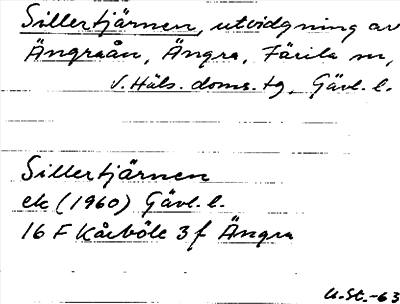 Sillertjärnen, utvidgning av
Ängraån, Ängra, Färila sn,
V. Häls. doms. tg, Gävl. l.
Sillertjärnen
ek (1960) Gävl. l.
16 F Kårböle 3 f Ängra
U. St. -63